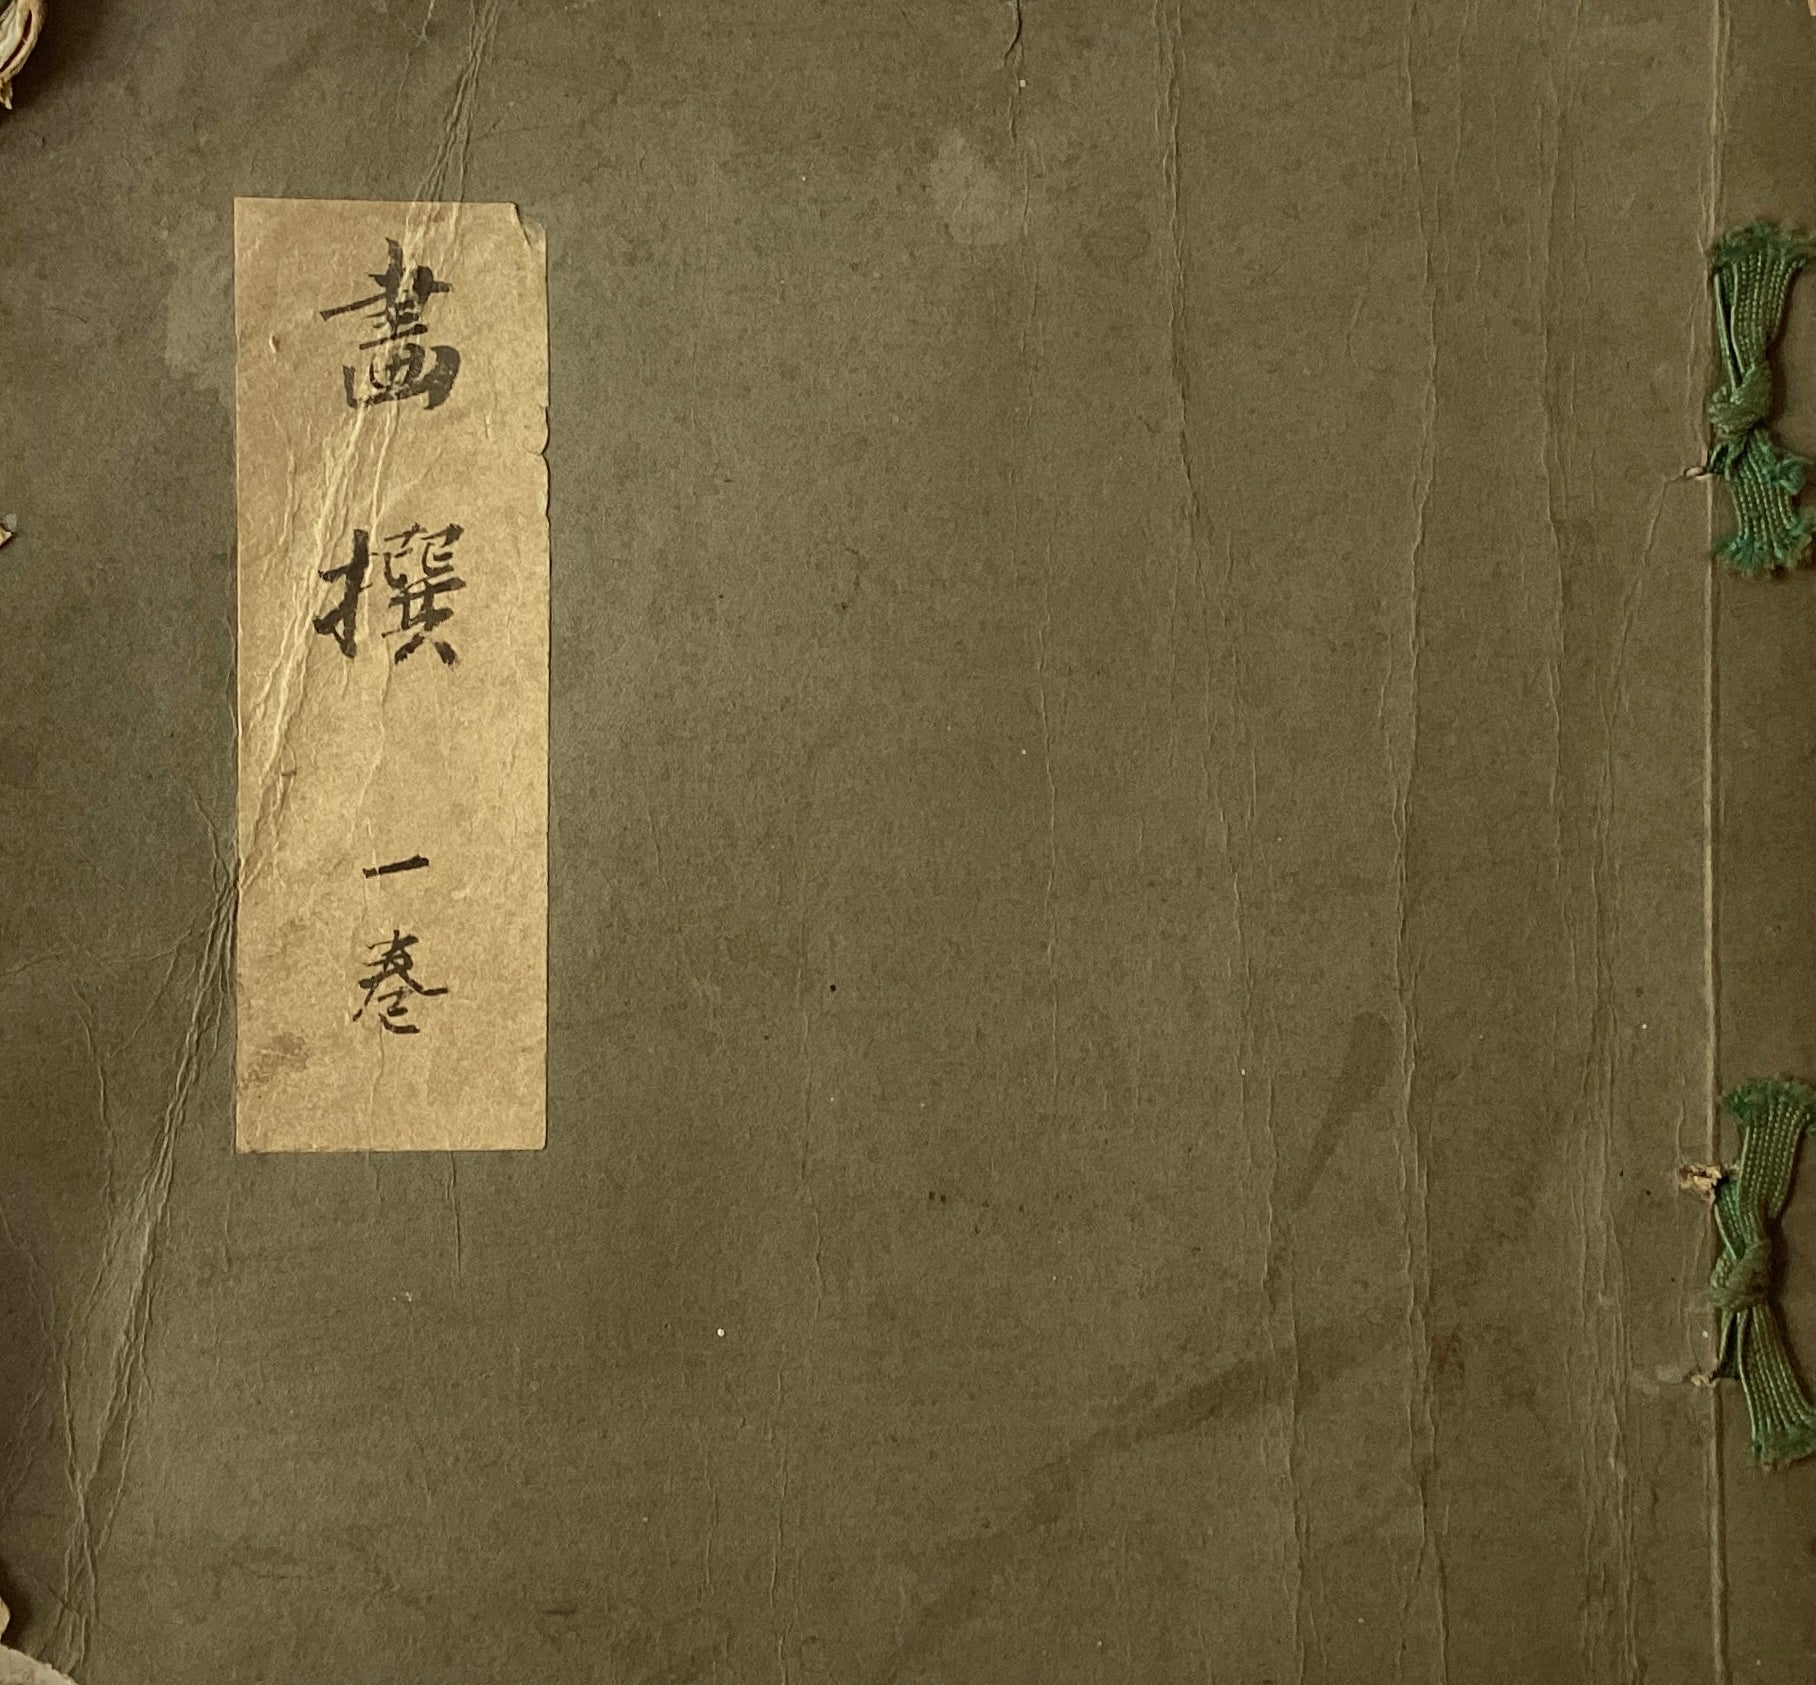 畫撰
一巻